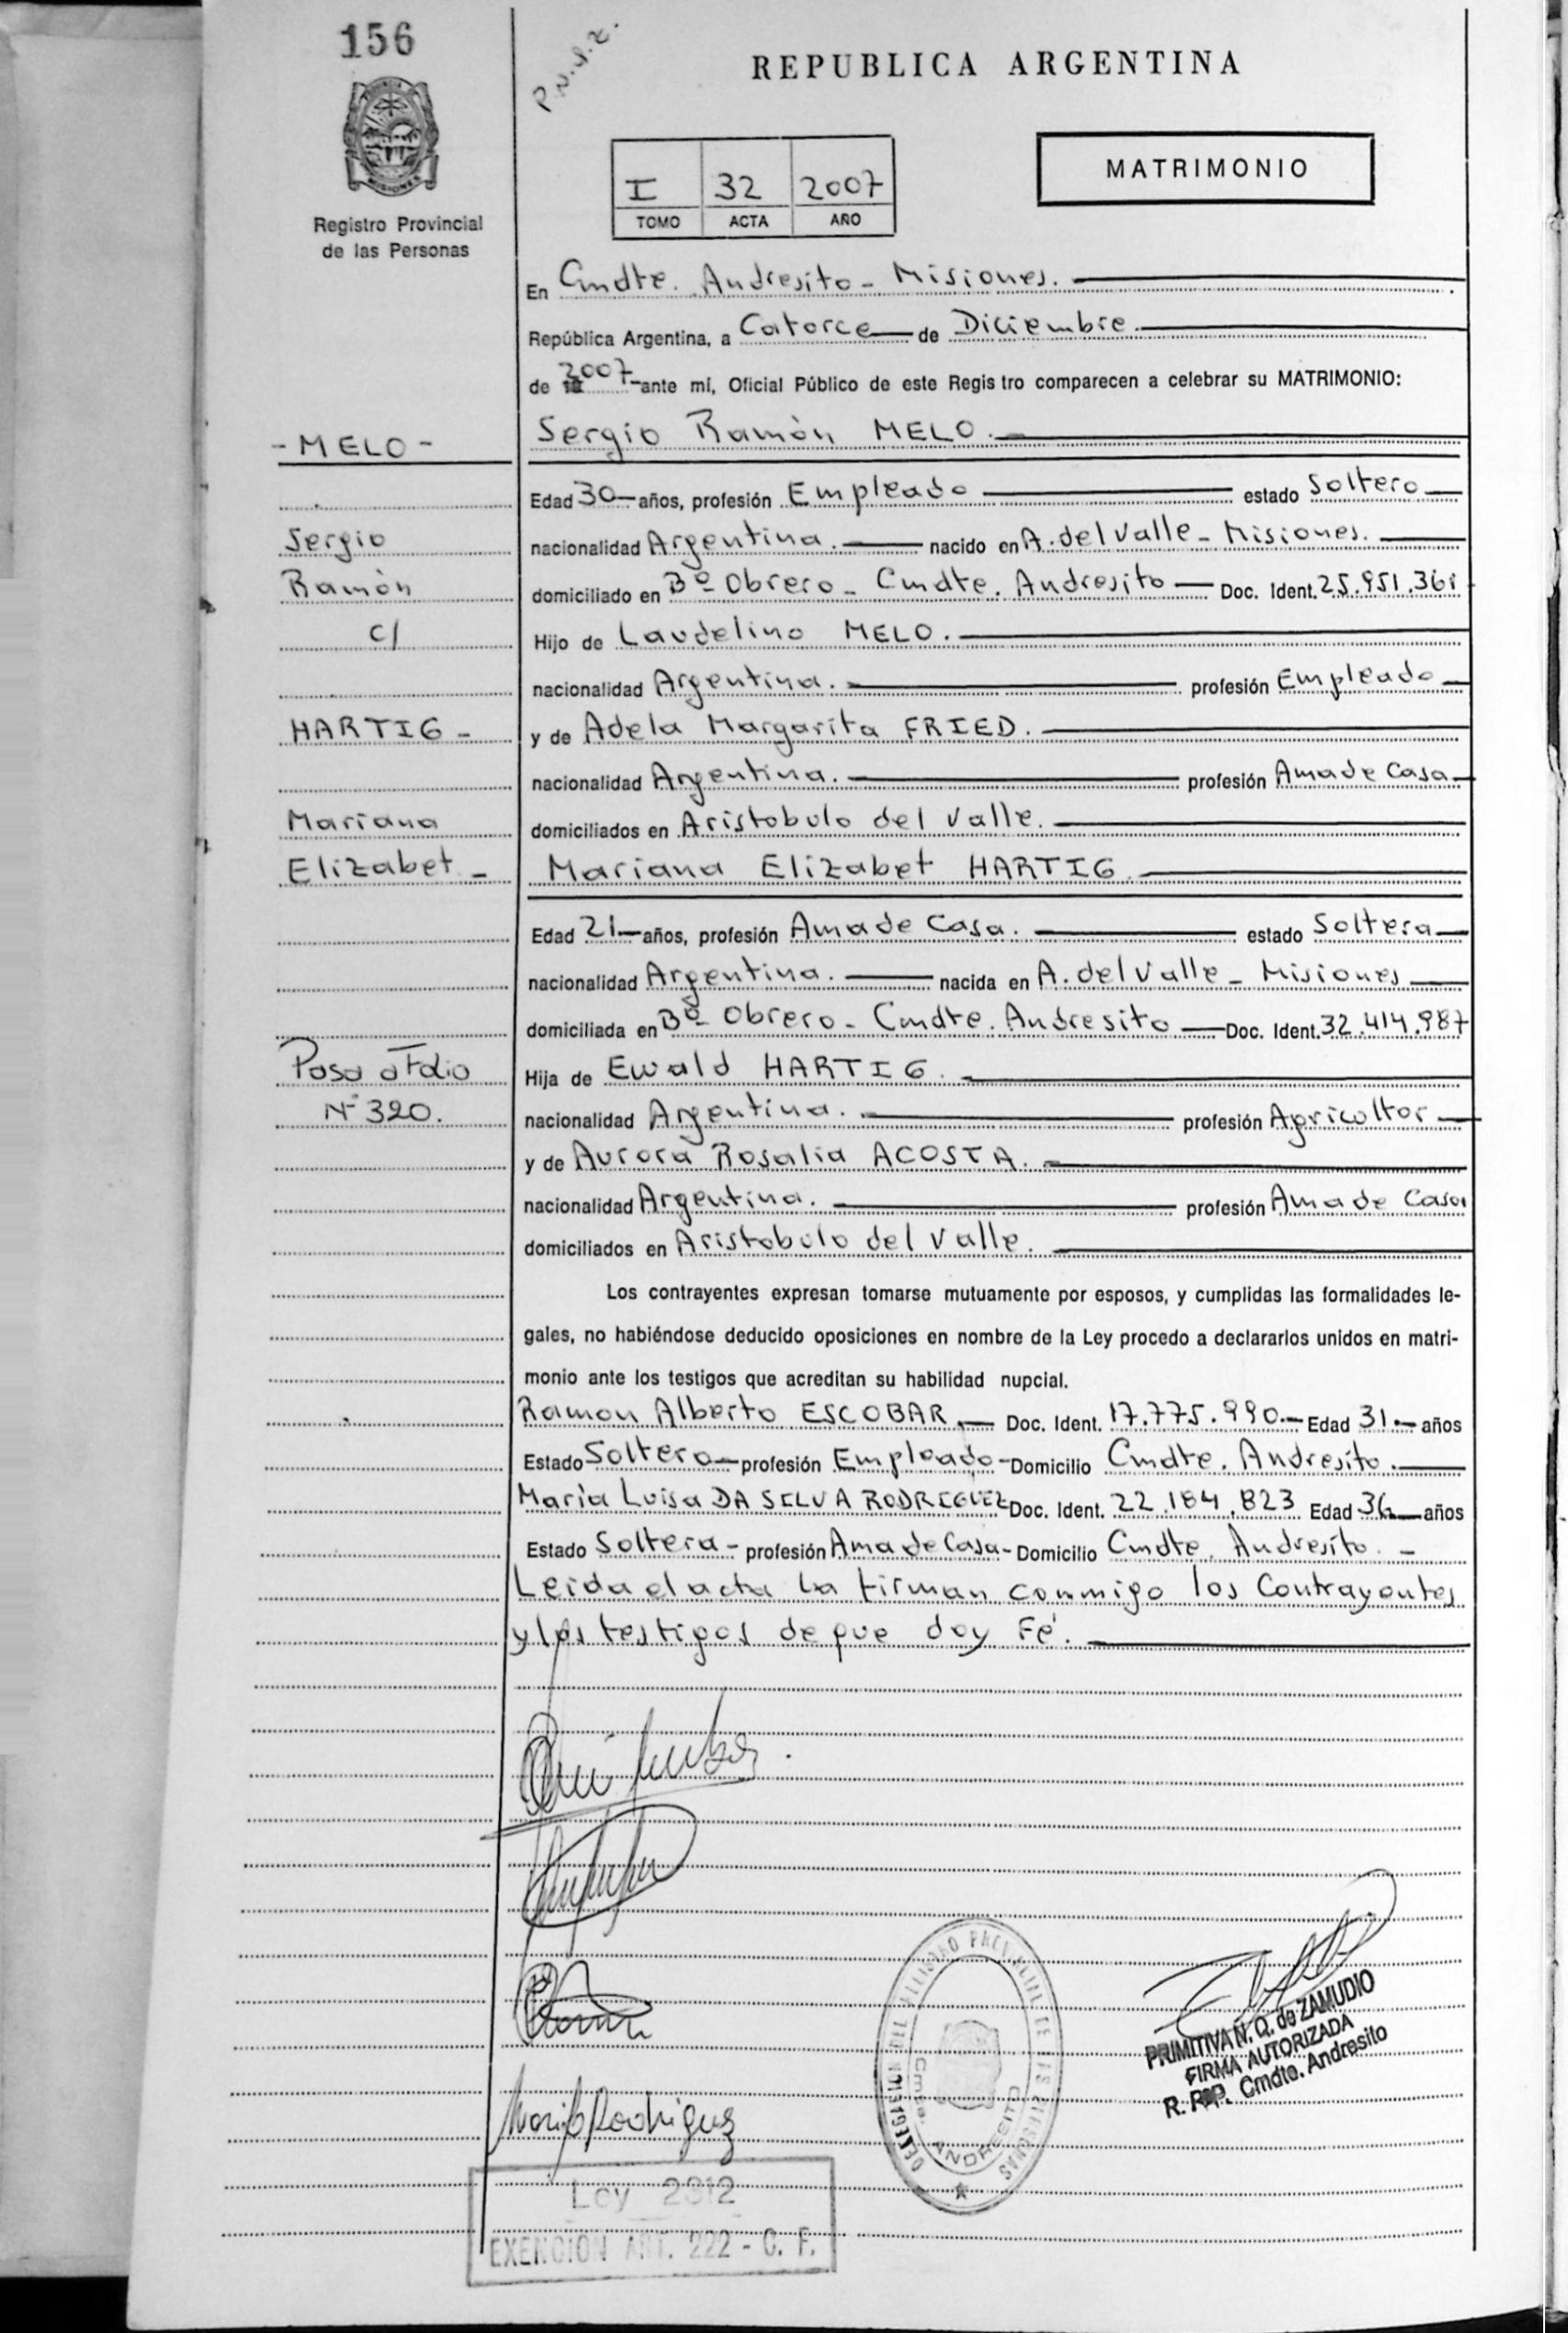 156
P.N.S.Z.
REPUBLICA ARGENTINA
MISIONES
Registro Provincial
de las Personas
I 32 2007
TOMO ACTA AÑO
MATRIMONIO
En Cmdte. Andresito - Misiones.
República Argentina, a Catorce de Diciembre
de 2007 ante mí, Oficial Público de este Regis tro comparecen a celebrar su MATRIMONIO:
- MELO - Sergio Ramòn MELO.
Edad 30 años, profesión Empleado estado Soltero
Sergio nacionalidad Argentina. nacido en A. del Valle - Misiones.
Ramòn domiciliado en Bº Obrero - Cmdte. Andresito Doc. Ident. 25.951.361
c/ Hijo de Laudelino MELO.
nacionalidad Argentina. profesión Empleado
HARTIG - y de Adela Margarita FRIED.
nacionalidad Argentina. profesión Ama de Casa
Mariana domiciliados en Aristobulo del Valle.
Elizabet - Mariana Elizabet HARTIG
Edad 21 años, profesión Ama de Casa. estado Soltera
nacionalidad Argentina. nacida en A. del Valle - Misiones
domiciliada en Bº Obrero - Cmdte. Andresito Doc. Ident. 32.414.987
Pasa a Folio Hija de Ewald HARTIG.
Nº 320. nacionalidad Argentina. profesión Agricultor
y de Aurora Rosalia ACOSTA.
nacionalidad Argentina. profesión Ama de Casa
domiciliados en Aristobulo del Valle.
Los contrayentes expresan tomarse mutuamente por esposos, y cumplidas las formalidades le-
gales, no habiéndose deducido oposiciones en nombre de la Ley procedo a declararlos unidos en matri-
monio ante los testigos que acreditan su habilidad nupcial.
Ramon Alberto ESCOBAR Doc. Ident. 17.775.990.- Edad 31.- años
Estado Soltero profesión Empleado - Domicilio Cmdte. Andresito.
Marìa Luisa DA SILVA RODRIGUEZ Doc. Ident. 22.184.823 Edad 36 años
Estado Soltera - profesión Ama de Casa - Domicilio Cmdte. Andresito. -
Leida el acta la firman conmigo los Contrayentes
y los testigos de que doy Fé.
Maria Rodriguez
DELEGACION DEL REGISTRO PROVINCIAL DE LAS PERSONAS
Cmte. ANDRESITO
PRIMITIVA N. Q. de ZAMUDIO
FIRMA AUTORIZADA
R. P. P. Cmdte. Andresito
Ley 2312
EXENCION ART. 222 - C. F.